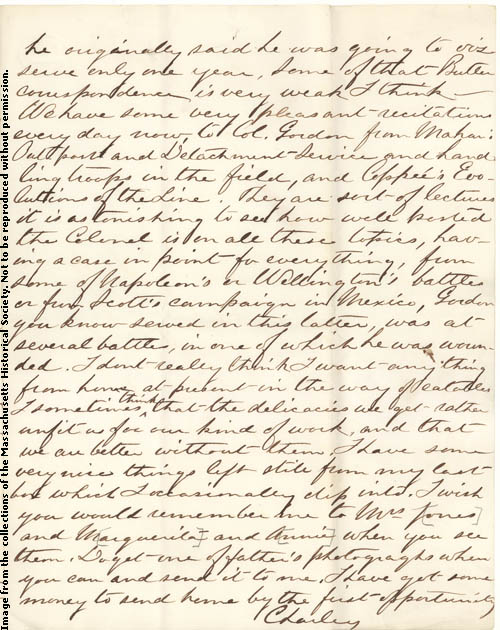 he originally said he was going to viz
serve only one year, Some of that Butler
correspondence is very weak I think —
We have some very pleasant recitations
every day now, to Col. Gordon from Mahan's
Outpost and Detachment Service and hand
ling troops in the field, and Coppée's Evo-
lutions of the Line. They are sort of lectures
it is astonishing to see how well posted
the Colonel is on all these topics, hav-
ing a case in point for everything, from
some of Napoleon's or Wellington's battles
or from Scott's campaign in Mexico, Gordon
you know served in this latter, was at
several battles in one of which he was woun-
ded. I dont really think I want anything
from home at present in the way of eatables
I sometimes think that the delicacies we get rather
unfit us for our kind of work, and that
we are better without them. I have some
very nice things left still from my last
box which I occasionally dip into. I wish
you would remember me to Mrs [Jones]
and Marguerite] and Annie] when you see
them. Do get one of father's photographs when
you can and send it to me. I have got some
money to send home by the first opportunity
Charley
Image from the collections of the Massachusetts Historical Society. Not to be reproduced without permission.